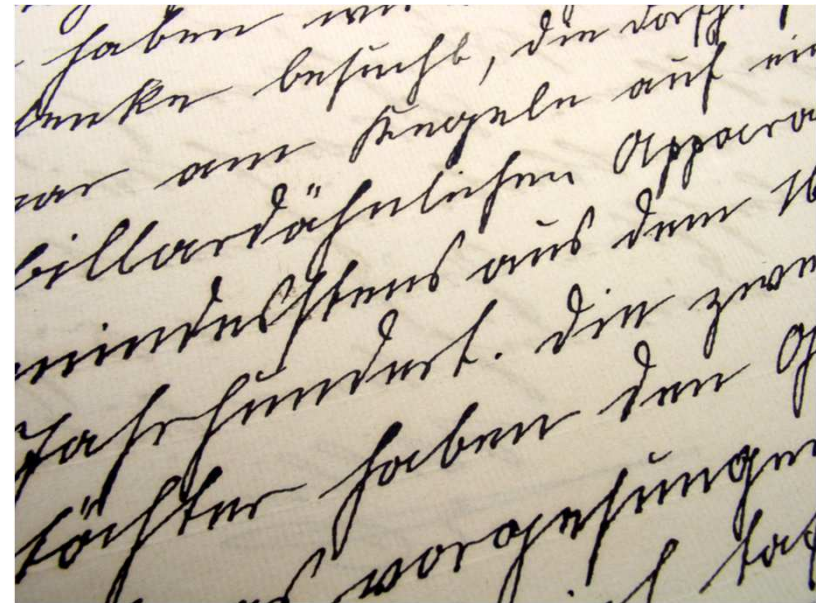 haben wir
besucht, die dortſ
war am Kegeln auf ein
billardähnlichen Appara
mindesſtens aus dem 16
Jahrhundert. Die zwe
töchter haben den G
vorgesungen
ich tat